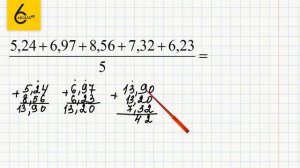 6
5,24 + 6,97 + 8,56 + 7,32 + 6,23 =
5
+ 5,24
8,56
13,90
+ 6,97
6,23
13,20
+ 13,90
13,20
7,32
42